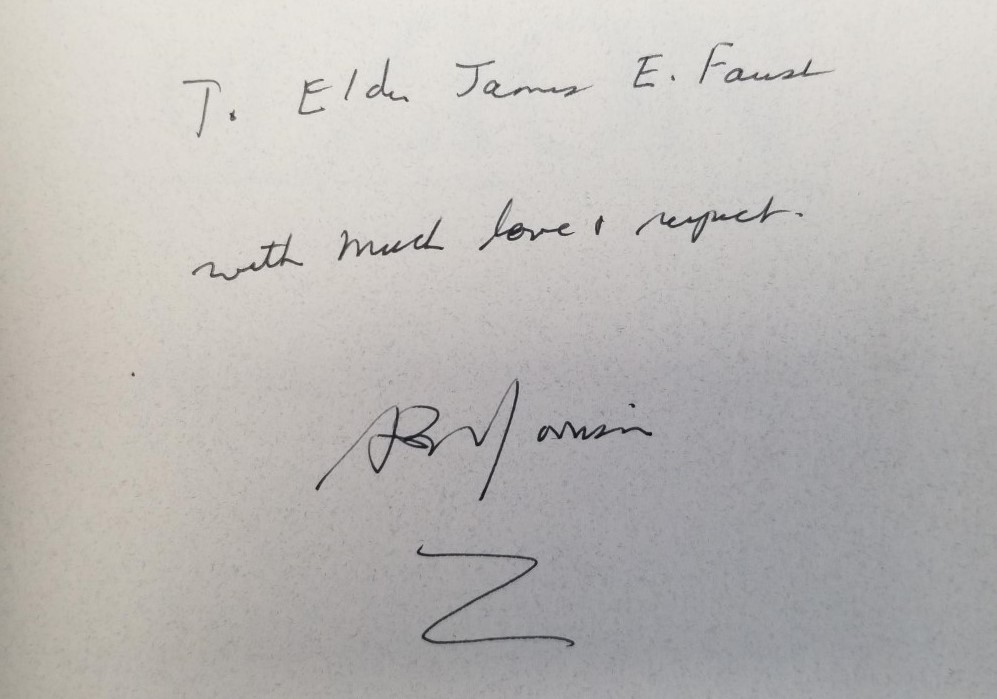 To Elder James E. Faust
with much love & respect.
ABMorrison